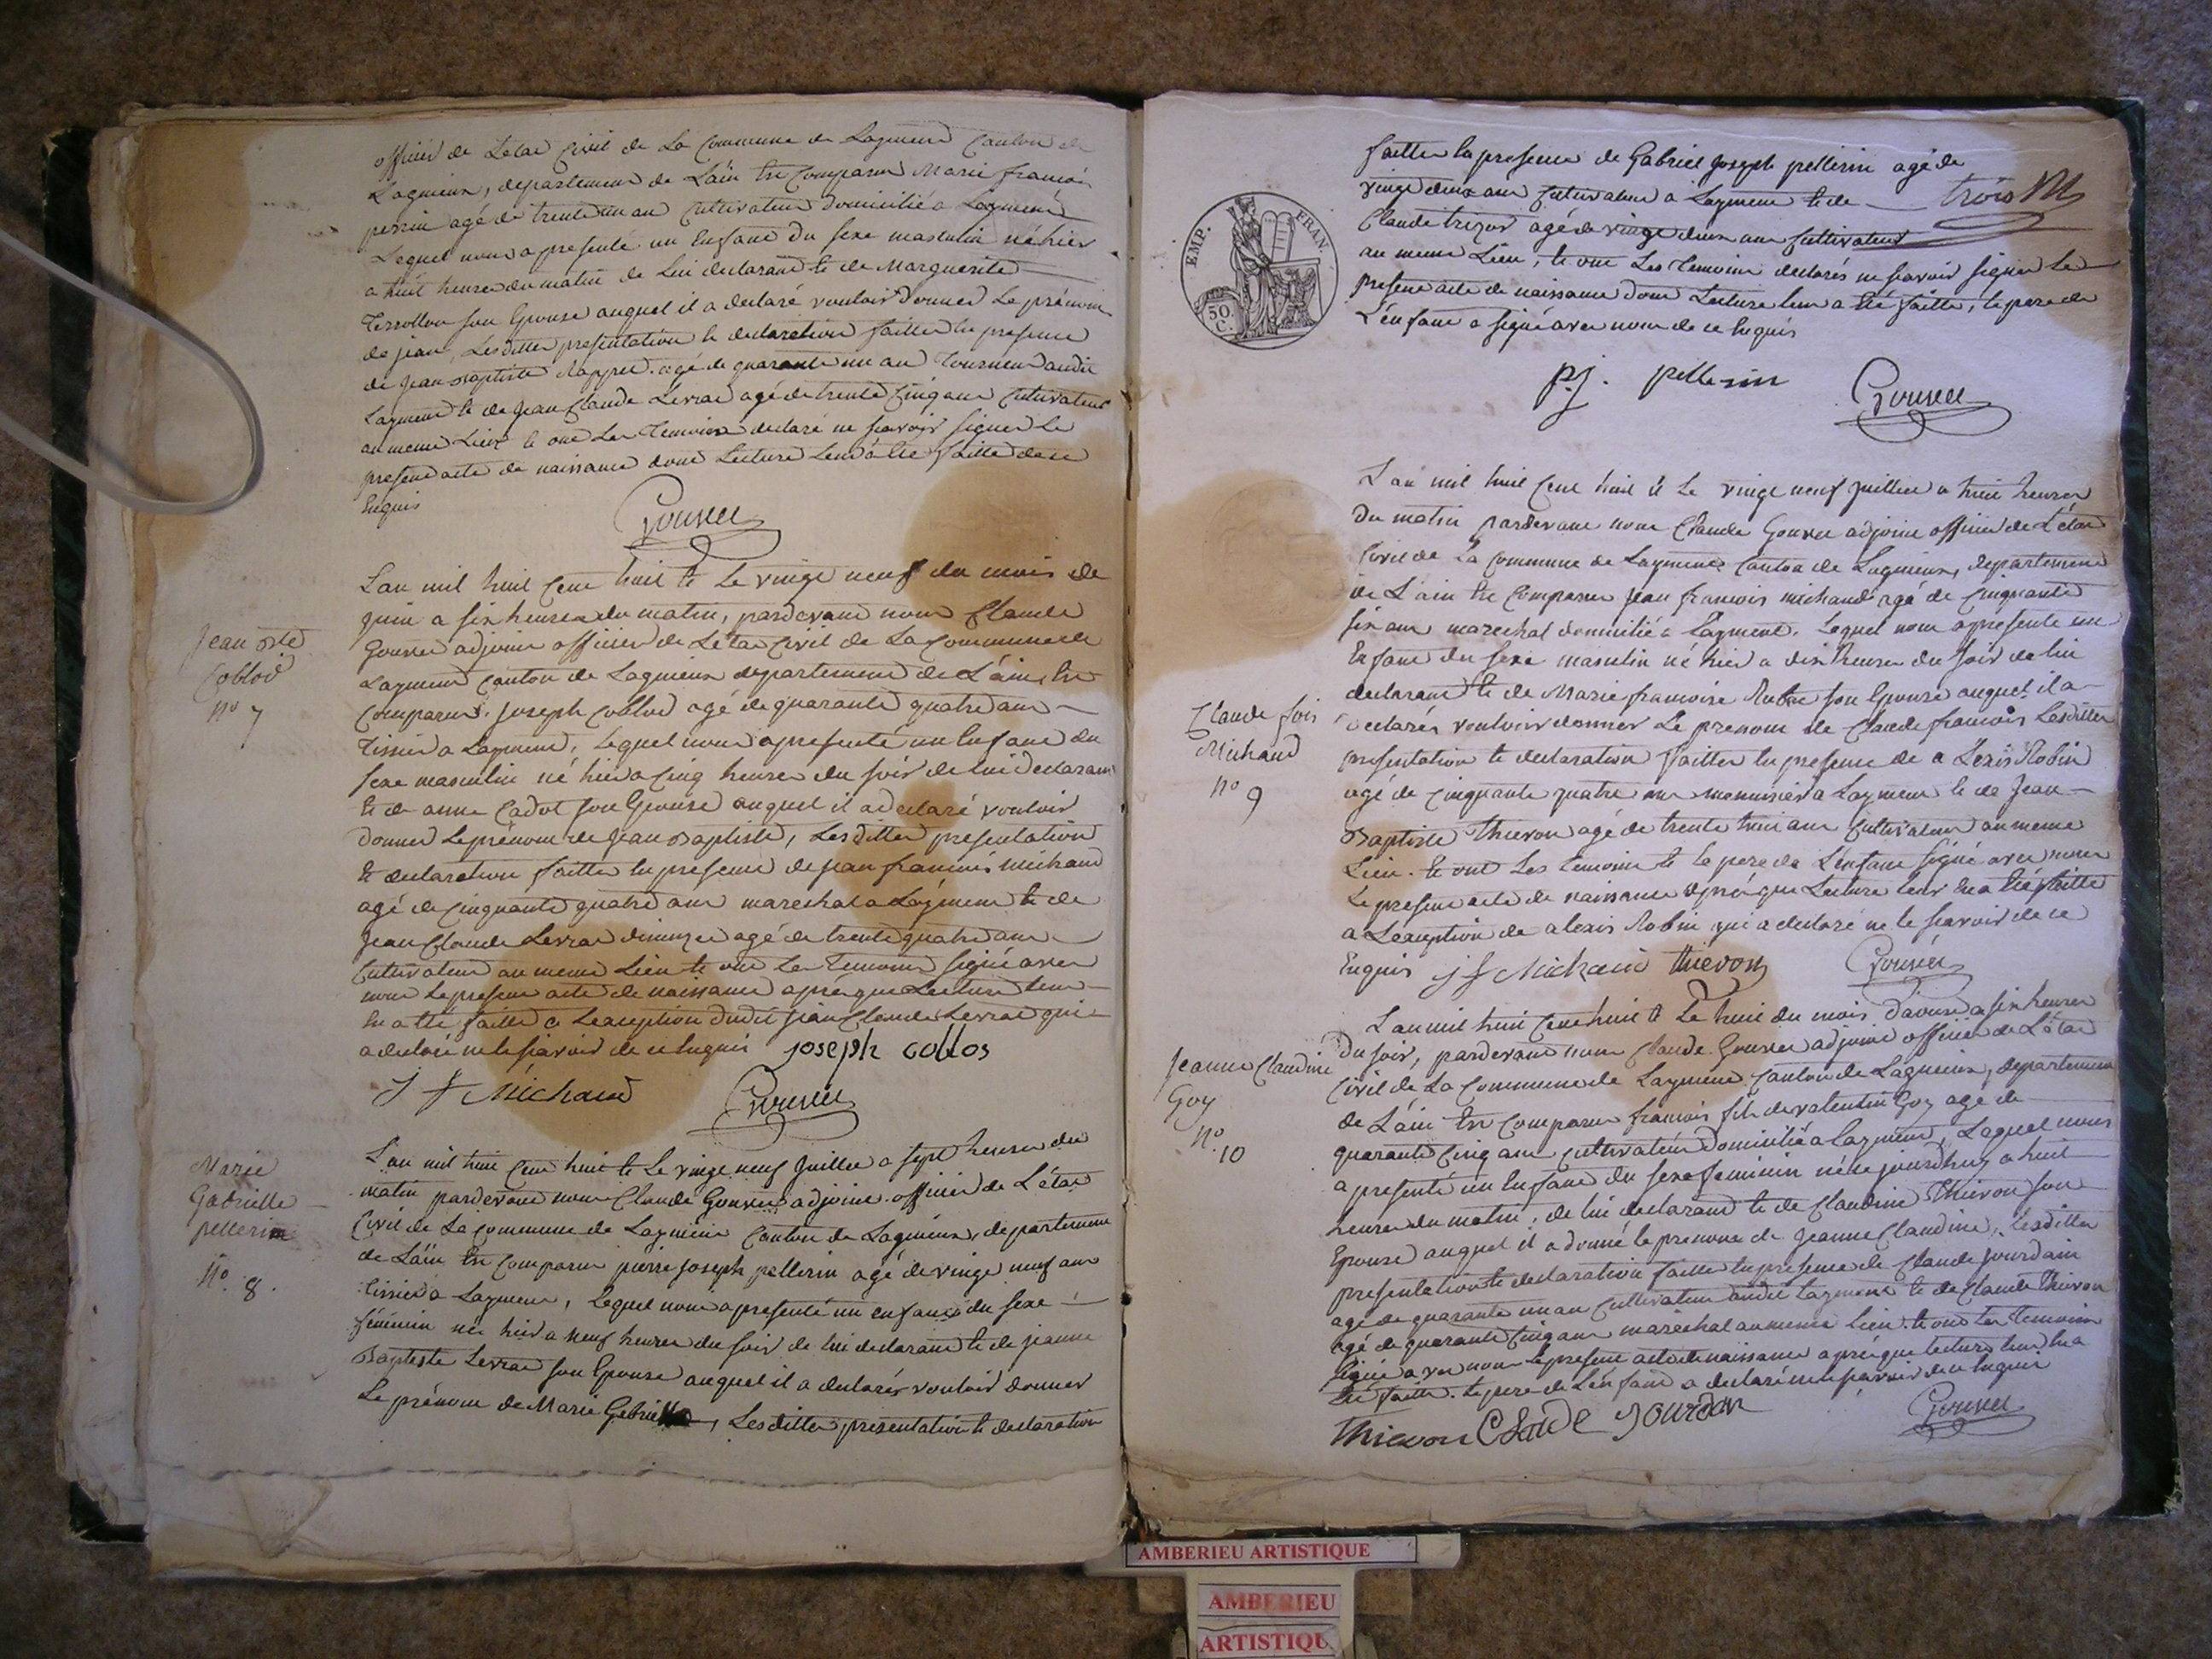 officier de Letat Civil de La Commune de Laymend Canton de
Lagnieux, departement de Lain est Comparus Marie françois
perrin agé de trente un an Cultivateur domicilié a Layment
Lequel nous a presenté un Enfant du sexe masculin né hier
a huit heures du matin de Lui declarant et de Marguerite
son Epouse auquel il a declaré vouloir donner Le prénom
de jean, Lesdittes presentation et declaration faittes En presence
de Jean Baptiste agé de quarante un an Tourneur audit
Layment et de Jean Claude Levrat agé de trente Cinq ans Cultivateur
au meme Lieux et ont Les Temoins declaré ne savoir signer Le
present acte de naissance dont Lecture Leur a Eté faitte de ce
Enquis
Gouvet
Jean Bte
Coblod
No 7
Lan mil huit Cent huit et Le vingt neuf du mois de
juin a six heures du matin, pardevant nous Claude
Gouvet adjoint officier de Létat Civil de La Commune de
Layment Canton de Lagnieux departement de Láin, Est
Comparus joseph Coblod agé de quarante quatre ans
Tissier a Layment, Lequel nous a presenté un Enfant du
sexe masculin né hier a Cinq heures du soir de lui declarant
et de anne Cadot son Epouse auquel il a declaré vouloir
donner Le prénom de Jean Baptiste, Lesdittes presentation
et declaration faittes En presence de jean francois michaud
agé de Cinquante quatre ans marechal a Layment et de
Jean Claude Levrat agé de trente quatre ans
Cultivateur au meme Lieu et ont Les Temoins signé avec
nous Le present acte de naissance aprés que Lecture Leur
En a été faitte a Lexception dudit jean Claude Levrat qui
a declaré ne le savoir de ce Enquis joseph coblos
J f Michaud Gouvet
Marie
Gabrielle
pellerin
No. 8.
L'an mil huit Cent huit et Le vingt neuf Juillet a sept heures du
matin pardevant nous Claude Gouvet adjoint officier de Létat
Civil de La Commune de Layment Canton de Lagnieux, departement
de Láin Est Comparus pierre joseph pellerin agé de vingt neuf ans
Tissier a Layment, Lequel nous a presenté un enfant du sexe
féminin née hier a neuf heures du soir de lui declarant et de jeanne
Baptiste Levrat son Epouse auquel il a declarés vouloir donner
Le prénom de Marie Gabrielle, Lesdittes presentation et declaration
faittes En presence de Gabriel joseph pellerin agé de
vingt deux ans Cultivateur a Layment et de
Claude trizot agé de vingt deux ans Cultivateur
au meme Lieu, et ont Les Temoins declarés ne savoir signer Le
present acte de naissance dont Lecture leur a été faitte, le pere de
L'enfant a signé avec nous de ce Enquis
trois
EMP. FRAN.
50 C.
pj. pellerin Gouvet
Claude fois
Michaud
No 9
L'an mil huit Cent huit et Le vingt neuf juillet a huit heures
du matin pardevant nous Claude Gouvet adjoint officier de Létat
Civil de La Commune de Layment Canton de Lagnieux, departement
de L'ain Est Comparus Jean francois michaud agé de Cinquante
six ans marechal domicilié a Layment, Lequel nous a presenté un
Enfant du sexe masculin né hier a dix heures du soir de lui
declarant et de Marie francoise son Epouse auquel il a
declarés vouloir donner Le prenom de Claude francois Lesdittes
presentation et declaration faittes En presence de a Lexis Robin
agé de Cinquante quatre ans menuisier a Layment et de Jean
Baptiste Thievon agé de trente trois ans Cultivateur au meme
Lieu. et ont Les temoins et le pere de L'enfant signé avec nous
Le present acte de naissance aprés que Lecture leur En a été faitte
a Lexception de alexis Robin qui a declaré ne le savoir de ce
Enquis j f Michaud thievon Gouvet
Jeanne Claudine
Goy
No 10
L'an mil huit Cent huit et Le huit du mois d'aoust a six heures
du soir, pardevant nous Claude Gouvet adjoint officier de L'état
Civil de La Commune de Layment Canton de Lagnieux, departement
de Láin Est Comparus francois fils de valentin Goy agé de
quarante Cinq ans Cultivateur domicilié a layment, Lequel nous
a presenté un Enfant du sexe feminin née ce jourdhuy a huit
heures du matin, de lui declarant et de Claudine Thievon son
Epouse auquel il a donné le prenom de Jeanne Claudine, Lesdittes
presentation et declaration faittes En presence de Claude jourdain
agé de quarante un an Cultivateur audit Layment et de Claude thievon
agé de quarante Cinq ans marechal au meme Lieu. et ont Les Temoins
signé avec nous Le present acte de naissance aprés que lecture leur En a
été faitte. le pere de L'enfant a declaré ne le savoir de ce Enquis
thievon Claude Jourdan Gouvet
AMBERIEU ARTISTIQUE
AMBERIEU
ARTISTIQU